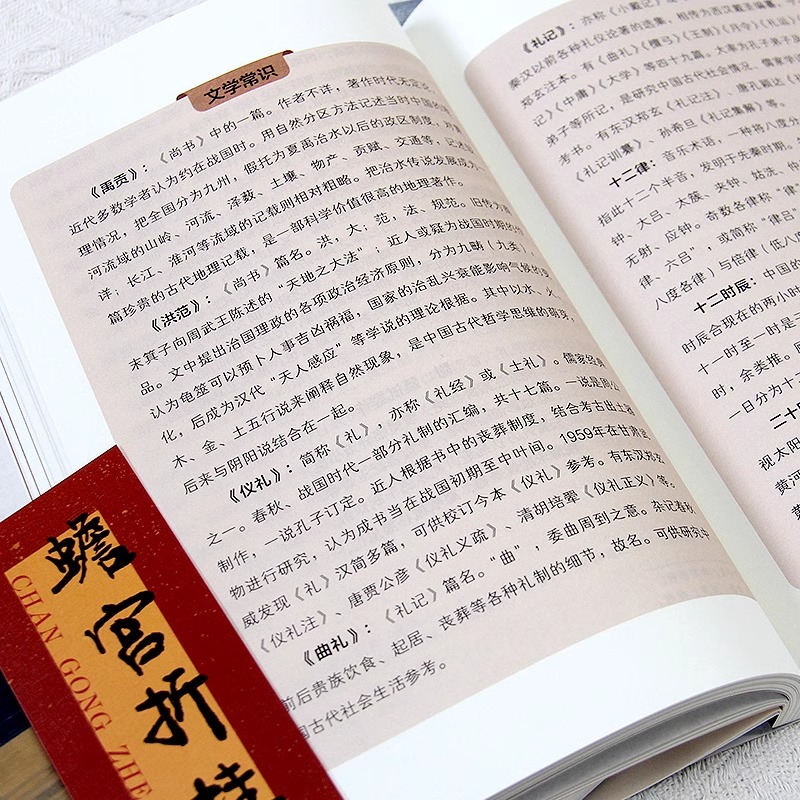 文学常识
《禹贡》：《尚书》中的一篇。作者不详，著作时代无定论，
近代多数学者认为约在战国时。用自然分区方法记述当时中国的
理情况，把全国分为九州，假托为夏禹治水以后的政区制度，
河流域的山岭、河流、泽薮、土壤、物产、贡赋、交通等，记述
详；长江、淮河等流域的记载则相对粗略。把治水传说发展成为
篇珍贵的古代地理记载，是一部科学价值很高的地理著作。
《洪范》：《尚书》篇名。洪，大；范，法、规范。旧传为
末箕子向周武王陈述的“天地之大法”；近人或疑为战国时期的作
品。文中提出治国理政的各项政治经济原则，分为九畴（九类），
认为龟筮可以预卜人事吉凶祸福，国家的治乱兴衰能影响气候的变
化，后成为汉代“天人感应”等学说的理论根据。其中以水、火、
木、金、土五行说来阐释自然现象，是中国古代哲学思维的萌芽，
后来与阴阳说结合在一起。
《仪礼》：简称《礼》，亦称《礼经》或《士礼》。儒家经典
之一。春秋、战国时代一部分礼制的汇编，共十七篇。一说是周公
制作，一说孔子订定。近人根据书中的丧葬制度，结合考古出土器
物进行研究，认为成书当在战国初期至中叶间。1959年在甘肃武
威发现《礼》汉简多篇，可供校订今本《仪礼》参考。有东汉郑玄
《仪礼注》、唐贾公彦《仪礼义疏》、清胡培翚《仪礼正义》等。
《曲礼》：《礼记》篇名。“曲”，委曲周到之意。杂记春秋
前后贵族饮食、起居、丧葬等各种礼制的细节，故名。可供研究中
国古代社会生活参考。
《礼记》：亦称《小戴记》
秦汉以前各种礼仪论著的选集，相传为西汉戴圣编纂
郑玄注本。有《曲礼》《檀弓》《王制》《月令》《礼运》
记》《中庸》《大学》等四十九篇，大率为孔子弟子及
弟子等所记，是研究中国古代社会情况、儒家学
考书。有东汉郑玄《礼记注》、唐孔颖达《礼
《礼记训纂》、孙希旦《礼记集解》等。
十二律：音乐术语，一种将八度分
指此十二个半音，发明于先秦时期。
钟、大吕、太簇、夹钟、姑洗、仲
无射、应钟。奇数各律称“律
律、六吕”，或简称“律吕
八度各律）与倍律（低八
十二时辰：中国的
时辰合现在的两小时
十一时至一时是子
时，余类推。
一日分为十
二十
视太阳
黄河
蟾宫折桂
CHAN GONG ZHE